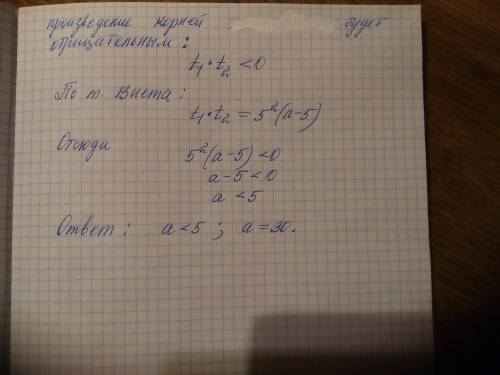 произведение корней будет
отрицательным:
t₁·t₂ < 0
По т. Виета:
t₁·t₂ = 5²(a-5)
Отсюда 5²(a-5) < 0
a-5 < 0
a < 5
Ответ: a < 5 ; a = 30.